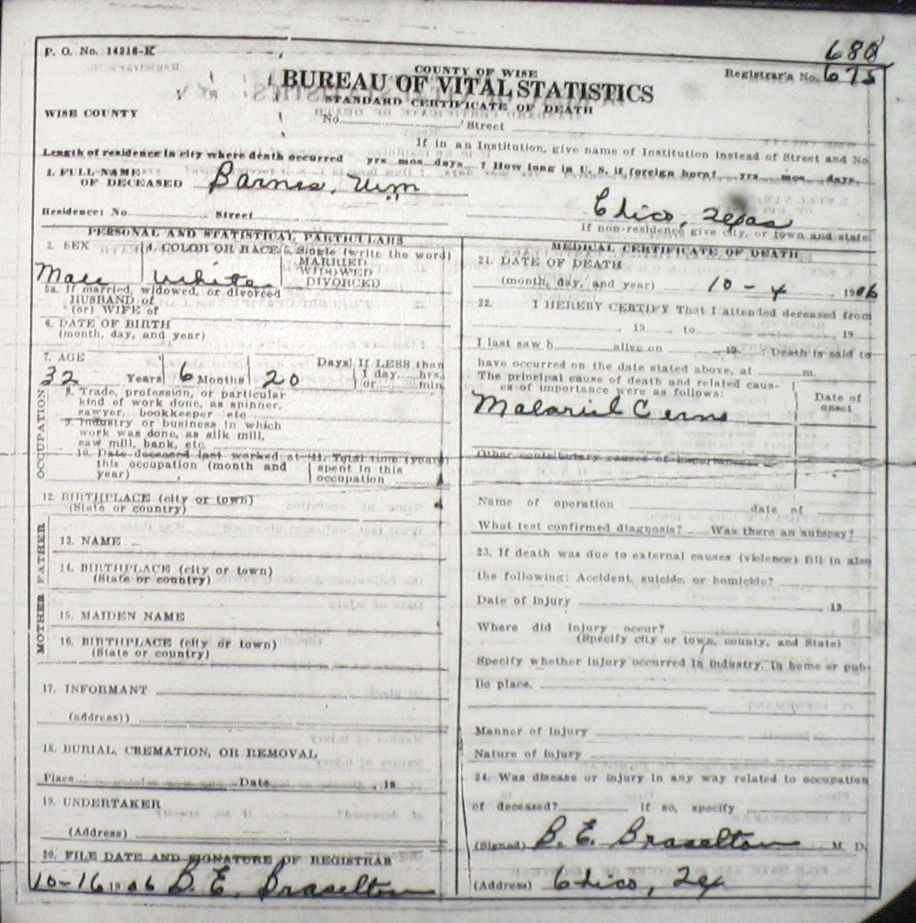 P. O. No. 14216-K
680
COUNTY OF WISE
BUREAU OF VITAL STATISTICS
Registrar's No. 675
STANDARD CERTIFICATE OF DEATH
WISE COUNTY
No. Street
If in an Institution, give name of Institution instead of Street and No
Length of residence in city where death occurred yrs mos days ? How long in U. S. if foreign born? yrs mos days
1. FULL NAME
OF DECEASED Barnes, Wm
Chico, Texas
Residence: No Street
If non-residence give city, or town and state
PERSONAL AND STATISTICAL PARTICULARS
2. SEX
Male
4. COLOR OR RACE
White
5. Single (write the word)
MARRIED
WIDOWED
DIVORCED
5a. If married, widowed, or divorced
HUSBAND of
(or) WIFE of
6. DATE OF BIRTH
(month, day, and year)
7. AGE
32 Years 6 Months 20 Days
If LESS than
1 day, hrs
or min.
OCCUPATION
8. Trade, profession, or particular
kind of work done, as spinner,
sawyer, bookkeeper etc
9. Industry or business in which
work was done, as silk mill,
saw mill, bank, etc
10. Date deceased last worked at
this occupation (month and
year)
11. Total time (years)
spent in this
occupation
12. BIRTHPLACE (city or town)
(State or country)
FATHER
13. NAME
14. BIRTHPLACE (city or town)
(State or country)
MOTHER
15. MAIDEN NAME
16. BIRTHPLACE (city or town)
(State or country)
17. INFORMANT
(address))
18. BURIAL, CREMATION, OR REMOVAL
Place Date , 19
19. UNDERTAKER
(Address)
20. FILE DATE AND SIGNATURE OF REGISTRAR
10-16 1906 B. E. Braselton
MEDICAL CERTIFICATE OF DEATH
21. DATE OF DEATH
(month, day, and year) 10-4 , 1906
22. I HEREBY CERTIFY That I attended deceased from
, 19 to , 19
I last saw h alive on 19 : Death is said to
have occurred on the date stated above, at m.
The principal cause of death and related caus-
es of importance were as follows:
Date of
onset
Malarial
Other contributory causes of importance
Name of operation date of
What test confirmed diagnosis? Was there an autopsy?
23. If death was due to external causes (violence) fill in also
the following: Accident, suicide, or homicide?
Date of injury , 19
Where did injury occur?
(Specify city or town, county, and State)
Specify whether injury occurred in industry, in home or pub-
lic place.
Manner of Injury
Nature of Injury
24. Was disease or injury in any way related to occupation
of deceased? If so, specify
(Signed) B. E. Braselton M. D.
(Address) Chico, Tex